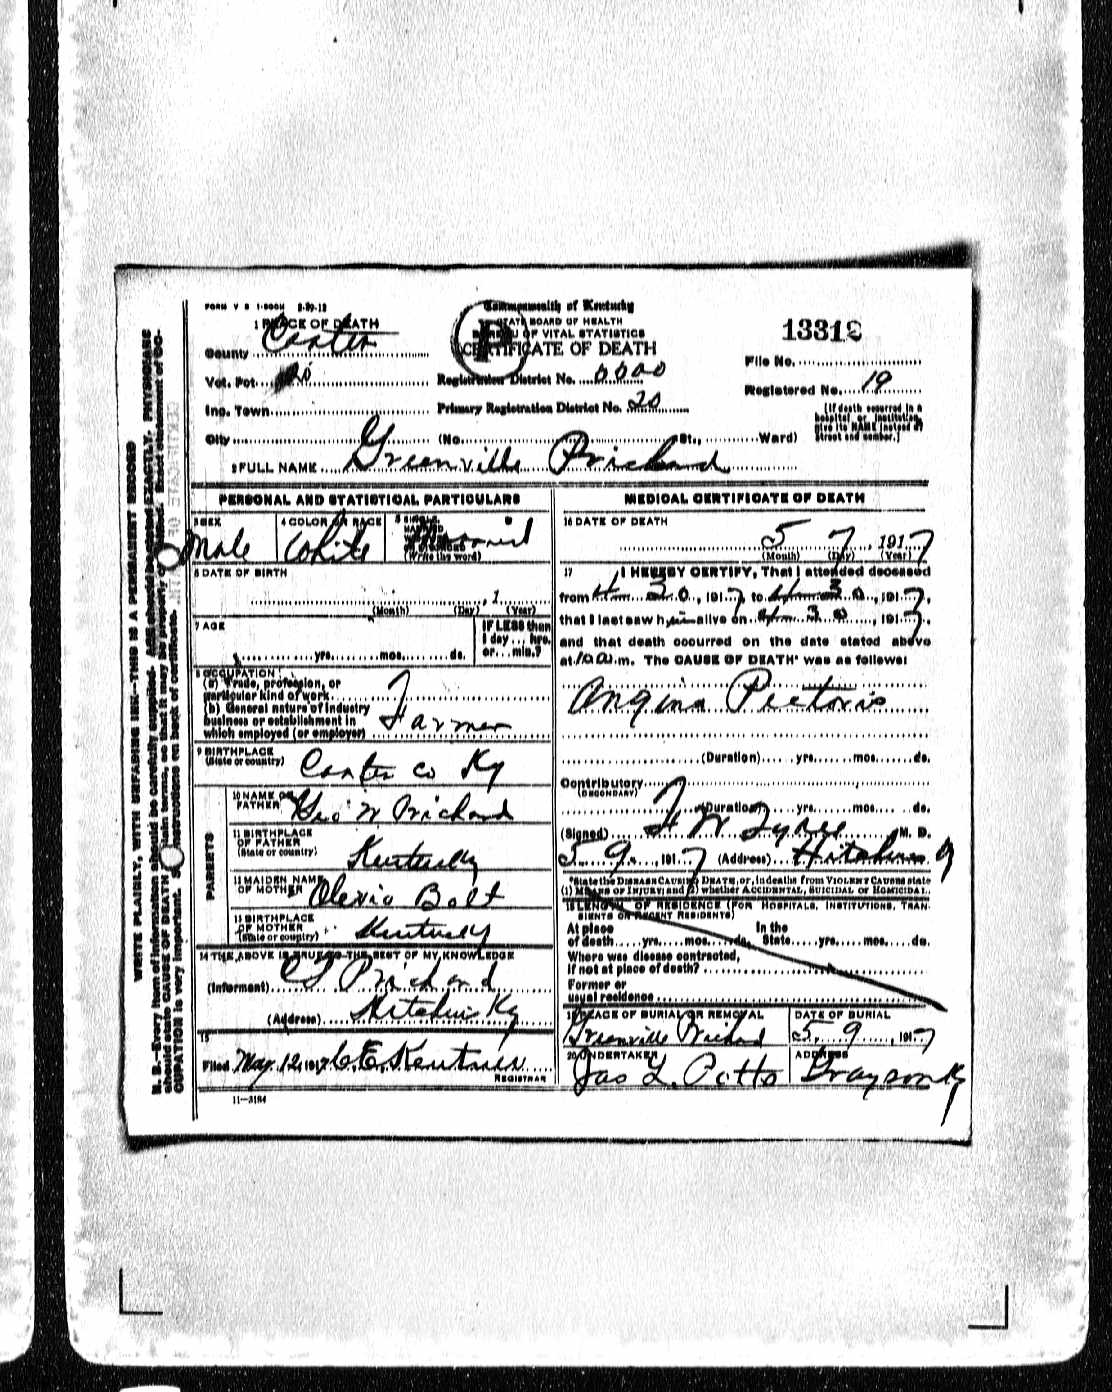 FORM V S 1-500M 8-29-12
Commonwealth of Kentucky
STATE BOARD OF HEALTH
BUREAU OF VITAL STATISTICS
CERTIFICATE OF DEATH
P
1 PLACE OF DEATH
County Carter
Vot. Pct.
Inc. Town
City (No. St., Ward)
Registration District No. 0000
Primary Registration District No. 20
File No.
Registered No. 19
[If death occurred in a hospital or institution, give its NAME instead of street and number.]
2 FULL NAME Greenville Prichard
PERSONAL AND STATISTICAL PARTICULARS
3 SEX Male
4 COLOR OR RACE White
5 SINGLE, MARRIED
(Write the word)
6 DATE OF BIRTH
, 1
(Month) (Day) (Year)
7 AGE
yrs. mos. ds.
IF LESS than 1 day ... hrs. or ... min.?
8 OCCUPATION
(a) Trade, profession, or particular kind of work
(b) General nature of industry business or establishment in which employed (or employer) Farmer
9 BIRTHPLACE
(State or country) Carter Co Ky
PARENTS
10 NAME OF FATHER Geo W Prichard
11 BIRTHPLACE OF FATHER
(State or country) Kentucky
12 MAIDEN NAME OF MOTHER Bolt
13 BIRTHPLACE OF MOTHER
(State or country) Kentucky
14 THE ABOVE IS TRUE TO THE BEST OF MY KNOWLEDGE
(Informant) Prichard
(Address) Hitchins Ky
15
Filed May 12, 1917 C.E.
REGISTRAR
11—3184
MEDICAL CERTIFICATE OF DEATH
16 DATE OF DEATH
5 7, 1917
(Month) (Day) (Year)
17 I HEREBY CERTIFY, That I attended deceased
from 4 30, 1917, to 4 30, 1917,
that I last saw him alive on 4 30, 1917,
and that death occurred on the date stated above
at 10 a.m. The CAUSE OF DEATH* was as follows:
Angina Pectoris
(Duration) yrs. mos. ds.
Contributory
(SECONDARY)
(Duration) yrs. mos. ds.
(Signed) W Tyree M. D.
5 9, 1917 (Address) Hitchins
*State the DISEASE CAUSING DEATH, or, in deaths from VIOLENT CAUSES state
(1) MEANS OF INJURY; and (2) whether ACCIDENTAL, SUICIDAL or HOMICIDAL.
18 LENGTH OF RESIDENCE (FOR HOSPITALS, INSTITUTIONS, TRANSIENTS OR RECENT RESIDENTS)
At place of death yrs. mos. ds. In the State yrs. mos. ds.
Where was disease contracted,
If not at place of death?
Former or usual residence
19 PLACE OF BURIAL OR REMOVAL Greenville Prichard
DATE OF BURIAL 5 9, 1917
20 UNDERTAKER Jas L. Potts
ADDRESS Grayson Ky
WRITE PLAINLY, WITH UNFADING INK—THIS IS A PERMANENT RECORD